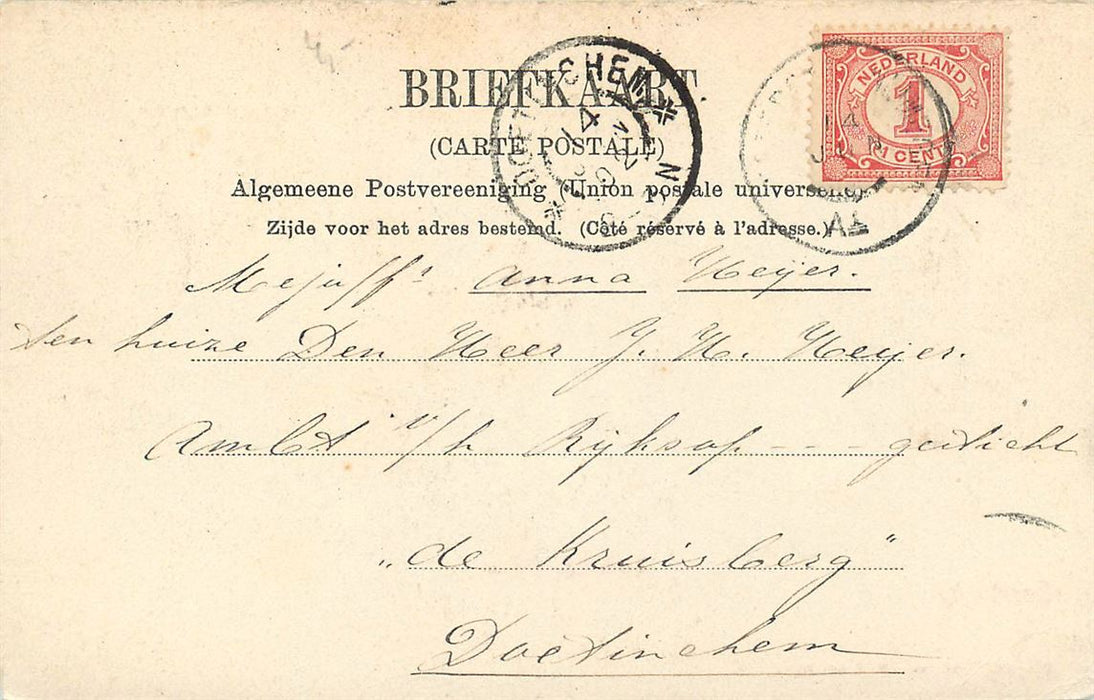 BRIEFKAART.
(CARTE POSTALE)
Algemeene Postvereeniging (Union postale universelle)
Zijde voor het adres bestemd. (Côté réservé à l'adresse.)
NEDERLAND
1
1 CENT
14
14
Mejuffr Anna Heijer.
ten huize Den Heer J. H. Heijer.
Ambt v/h Rijksop---gesticht
„de Kruisberg"
Doetinchem